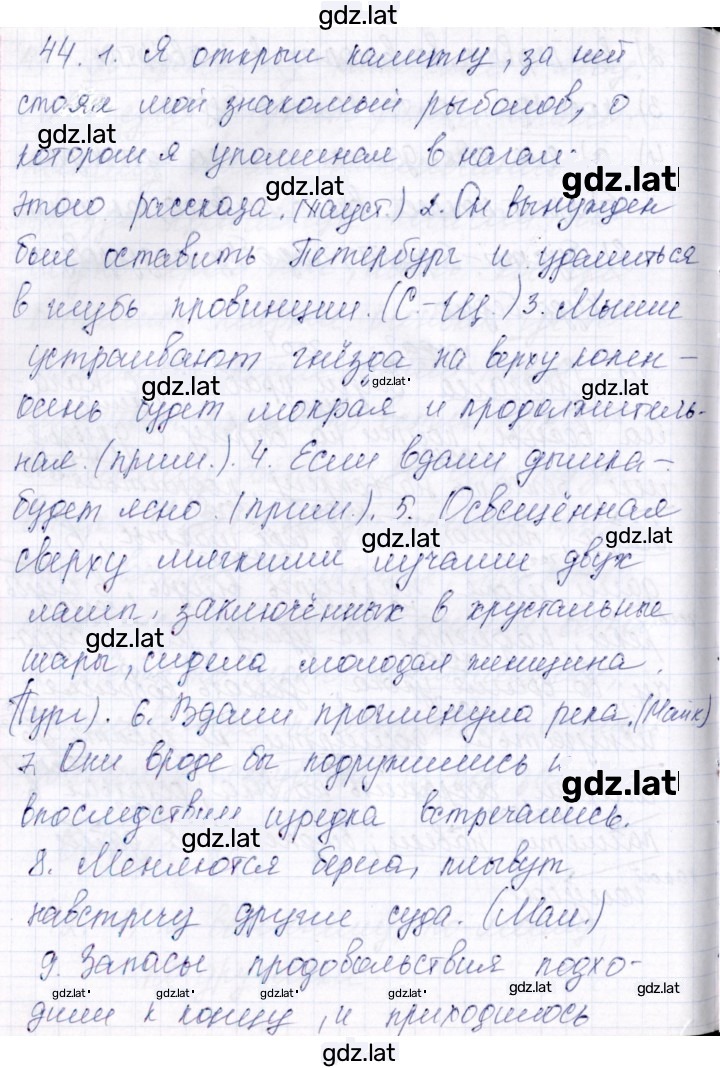 gdz.lat
44. 1. Я открыл калитку, за ней
стоял мой знакомый рыболов, о
gdz.lat
котором я упоминал в начал
gdz.lat
gdz.lat
этого рассказа. (Пауст.) 2. Он вынужден
был оставить Петербург и удалиться
в глубь провинции. (С.-Щ.) 3. Мыши
устраивают гнёзда на верху копен –
gdz.lat
gdz.lat
gdz.lat
осень будет мокрая и продолжитель-
ная. (прим.). 4. Если вдали дымка –
будет ясно. (прим.). 5. Освещённая
gdz.lat
gdz.lat
сверху мягкими лучами двух
ламп, заключённых в хрустальные
gdz.lat
шары, сидела молодая женщина.
(Тург). 6. Вдали проглянула река. (Майк)
7. Они вроде бы подружились и
gdz.lat
впоследствии изредка встречались.
gdz.lat
8. Меняются берега, плывут
навстречу другие суда. (Мам.)
9. Запасы продовольствия подхо-
gdz.lat
gdz.lat
gdz.lat
gdz.lat
gdz.lat
gdz.lat
дили к концу, и приходилось
gdz.lat